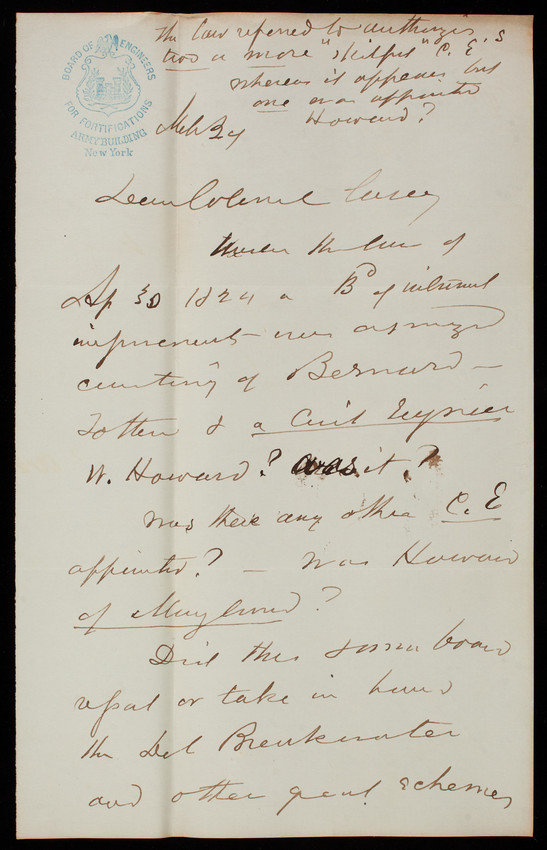 BOARD OF ENGINEERS
FOR FORTIFICATIONS
ARMY BUILDING
New York
The law referred to authorizes
two or more "skilful" C. E.'s
whereas it appears but
one was appointed
Howard?
Mch 24
Dear Colonel Casey
Under the law of
Ap 30 1824 a Bd of internal
improvement was
consisting of Bernard -
Totten & a Civil Engineer
W. Howard? was it?
Was there any other C. E
appointed? - was Howard
of Maryland?
Did this same board
or take in hand
the Del Breakwater
and other great schemes